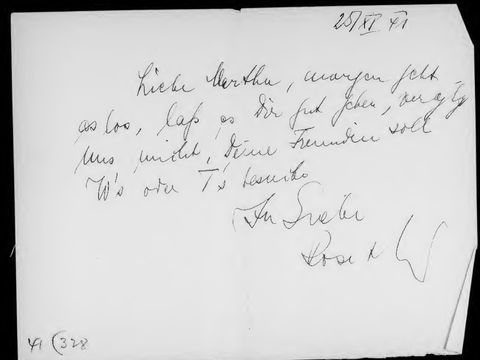 25/XI 41
Liebe Martha, morgen geht
es los, laß es Dir gut gehen, vergiß
uns nicht, Deine Freundin soll
W's oder T's besuche
In Liebe
Rose u
41 (328